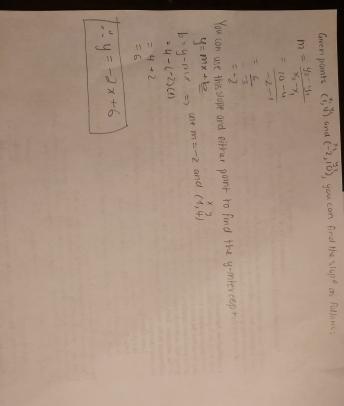 x₁ y₁ x₂ y₂
Given points (1,4) and (-2,10), you can find the slope as follows:
m = y₂-y₁
x₂-x₁
= 10-4
-2-1
= 6
-3
= -2
You can use this slope and either point to find the y-intercept.
y=mx+b
x y
b=y-mx => use m=-2 and (1,4)
=4-(-2)(1)
=4+2
=6
∴ y = -2x+6